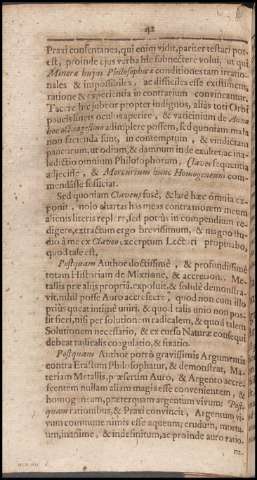 92
Praxi consentanea, qui enim vidit, pariter testari pot-
est, proinde ejus verba hic subnectere volui, ut qui
Minera hujus Philosophicæ conditiones tam irratio-
nales & impossibiles, ac difficiles esse existimem,
ratione & experientia in contrarium convincantur.
Tacere hic jubeor propter indignos, alias toti Orbi
paucis oculos aperire, & vaticinium de
adimplere possem, sed quoniam mala
non facienda sunt, in contemptum, & vindictam
paucorum, ut odium, & damnum inde exulter, ac ma-
ledictio omnium Philosophorum, Claves sequentia
adjecisse, & Mercurium hunc Homogeneum com-
mendasse sufficiat.
Sed quoniam Claveus fusè, & latè hæc omnia ex-
ponit, nolo chartas has meas contrariorem meum
alienis literis replere, sed potiùs in compendium re-
digere, extractum ergo brevissimum, & magno stu-
dio à me ex Claveo excerptum Lectori propinabo,
quod tale est,
Postquam Author doctissimè, & profundissimè
totam Historiam de Mixtione, & accretione Me-
tallis præ aliis propriâ, exposuit, & solidè demonstra-
vit, nihil posse Auro accrescere, quod non cum illo
priùs queat intimè uniri, & quod talis unio non pos-
sit fieri, nisi per solutionem radicalem, & quod talem
Solutionem necessario, & ex cursu Naturæ consequi
debeat radicalis coagulatio, & fixatio.
Postquam Author porrò gravissimis Argumentis
contra Erastum Philosophatur, & demonstrat, Ma-
teriam Metallis, præsertim Auro, & Argento accre-
scentem nullam aliam magis esse convenientem, &
homogeneam, præterquam argentum vivum: Post-
quam rationibus, & Praxi convincit, Argentum vi-
vum commune nimis esse aqueum, crudum, mortu-
um, inanime, & indefinitum, ac proinde auro ratio-
ne